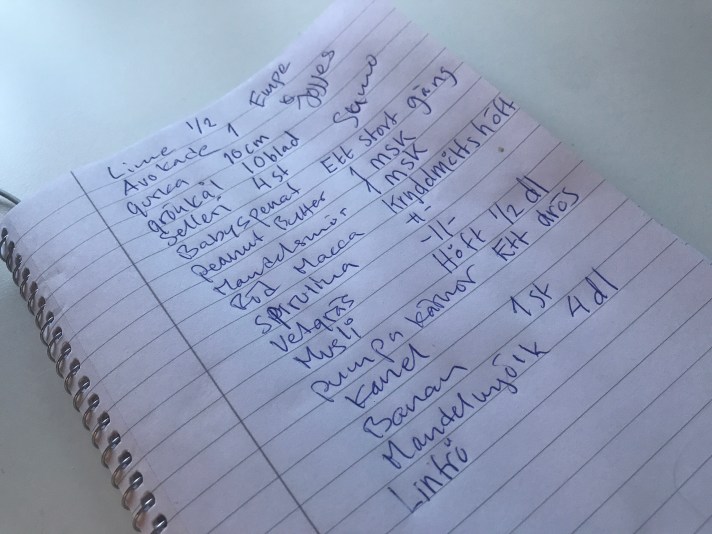 Lime 1/2
Avokado 1
gurka 10cm
grönkål 10blad
Selleri 4st
Babyspenat Ett stort gäng
peanut Butter 1 msk
Mandelsmör 1 msk
Röd Macca Kryddmåttshöft
Spirulina -||-
Vetgräs -||-
Musli Höft 1/2 dl
pumpa kärnor Ett
Kanel
Banan 1st
Mandelmjölk 4dl
Linfrö